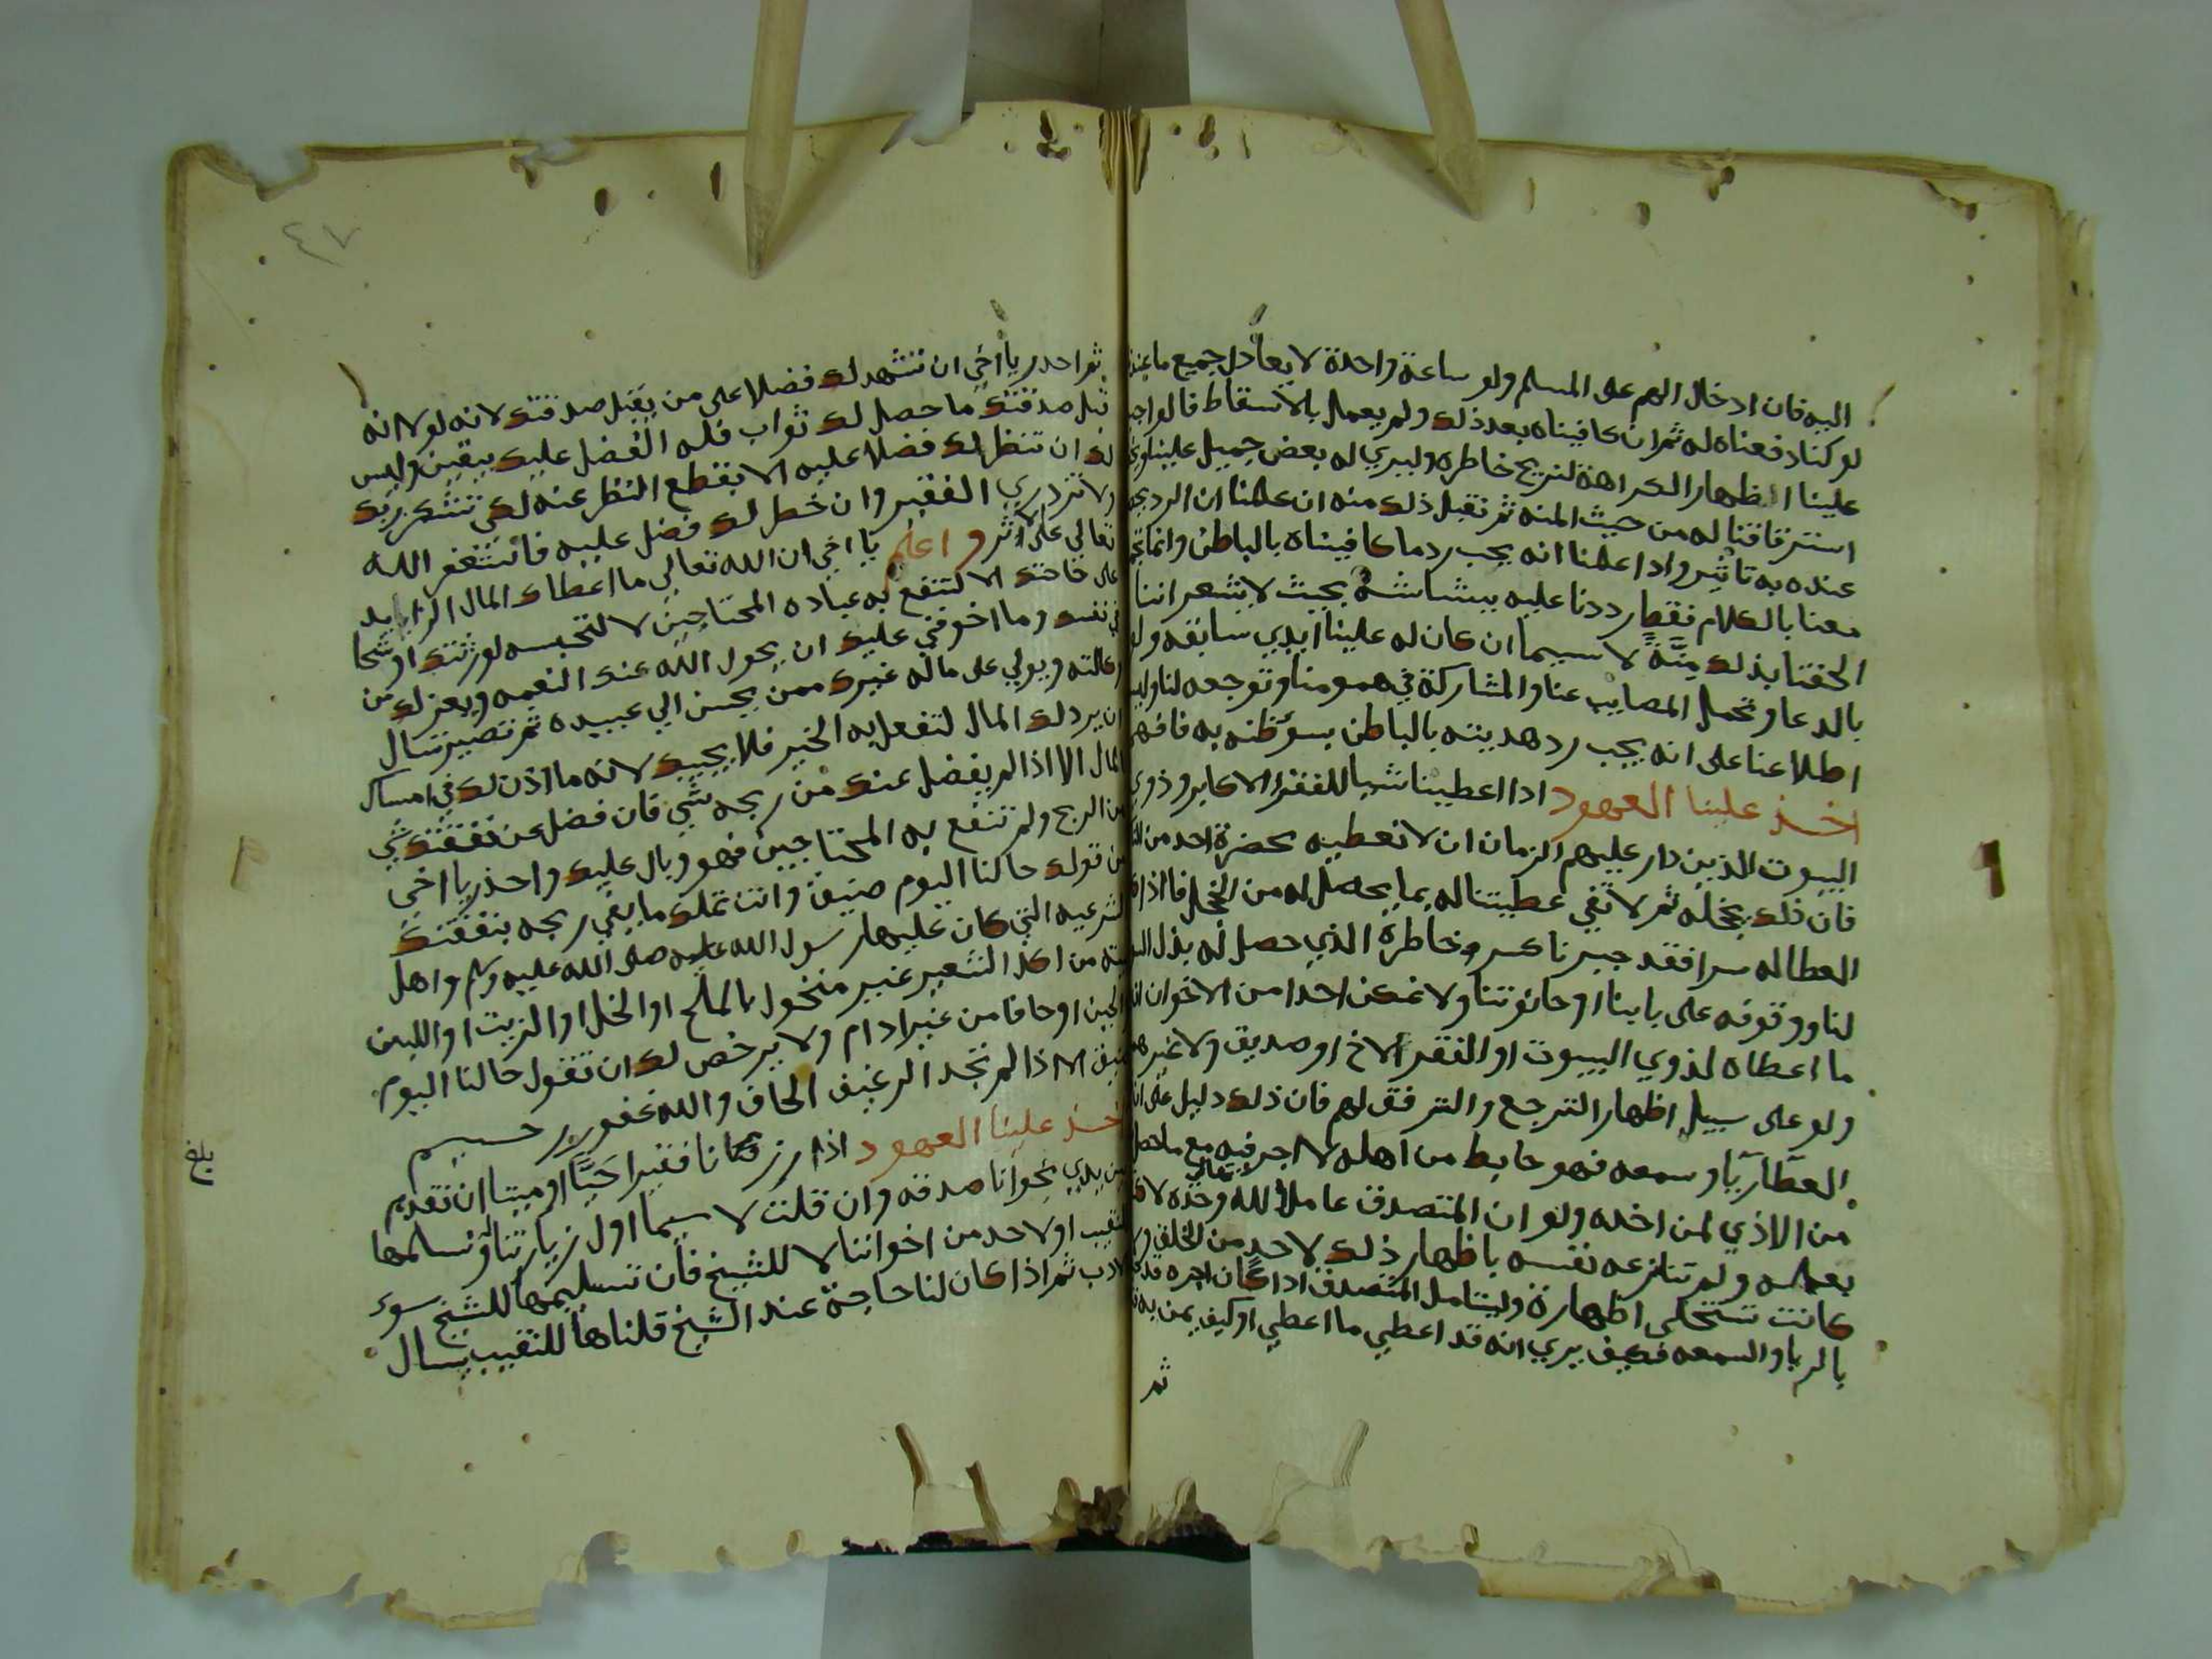 اليه فان ادخال الهم على المسلم ولو ساعة واحدة لا يعادل جميع ما
لو كنا دفعناه له ثم ان كافيناه بعد ذلك ولم يعمل بالاسقاط قالواجب
علينا اظهار الكراهة لنريح خاطره وليري له بعض جميل علينا
استرقاقنا له من حيث المنه ثم نقبل ذلك منه ان علمنا ان الرد
عنده به تاثير واذا علمنا انه يجب رد ما كافيناه بالباطن وانما
معنا بالكلام فقط رددنا عليه ببشاشة بحيث لا يشعر اننا
الحقنا بذلك منَّةً لا سيما ان كان له علينا ايدي سابقه
بالدعا وتحمل المصايب عنا والمشاركة في همومنا وتوجعه لنا
اطلاعنا على انه يجب رد هديته بالباطن بسؤ ظنه به فافهم
اخذ علينا العهود اذا اعطينا شيا للفقرا الاكابر وذوي
البيوت الذين دار عليهم الزمان ان لا نعطيه بحضرة احد من
فان ذلك يخجله ثم لا تفي عطيتنا له بما يحصل له من الخجل فاذا
العطا له سرا فقد جبرنا كسر خاطره الذي حصل له بذل
لنا ووقوفه على بابنا او حانوتنا ولا نمكن احدا من الاخوان
ما اعطاه لذوي البيوت او الفقرا لاخ او صديق ولا غير
ولو على سبيل اظهار الترجع والترفق لهم فان ذلك دليل على
العطا ريآ وسمعه فهو حابط من اهله لا اجر فيه مع ما حصل
من الاذي لمن اخذه ولو ان المتصدق عاملا لله تعالى وحده
بعمله ولم تنازعه نفسه باظهار ذلك لاحد من الخلق
كانت تستحلي اظهاره وليتامل المتصدق اذا كان اجره قد
بالريا والسمعه فكيف يري انه قد اعطي ما اعطي او كيف يمن به
ثم
٤٧
ثم احدر يا اخي ان تشهد لك فضلا على من يقبل صدقتك لانه لولا انه
قبل صدقتك ما حصل لك ثواب فله الفضل عليك بيقين وليس
لك ان تنظر لك فضلا عليه الا بقطع النظر عنه لكي تشكر ربك
ولا تزدري الفقير وان خطر لك فضل عليه فاستغفر الله
تعالي على الاثر واعلم يا اخي ان الله تعالي ما اعطاك المال الزايد
على حاجتك الا لتنفع به عباده المحتاجين لا لتحبسه لورثتك او شحا
في نفسك وما اخوفني عليك ان يحول الله عنك النعمه ويعزلك من
وكالته ويولي على ماله غيرك ممن يحسن الي عبيده ثم تصير تسال
ان يرد لك المال لتفعل به الخير فلا يجيبك لانه ما اذن لك في امساك
المال الا اذا لم يفضل عنك من ربحه شي فان فضل عن نفقتك شي
من الربح ولم تنفع به المحتاجين فهو وبال عليك واحذر يا اخي
من قولك حالنا اليوم ضيق وانت تملك ما يفي ربحه بنفقتك
الشرعيه التي كان عليها رسول الله صلى الله عليه وسلم واهل
بيته من اكل الشعير غير منخول بالملح او الخل او الزيت او اللبن
والجبن او حافا من غير ادام ولا يرخص لك ان تقول حالنا اليوم
ضيق الا اذا لم تجد الرغيف الحاف والله غفور رحيم
اخذ علينا العهود اذا زرنا فقيرا حيًّا او ميتا ان نقدم
بين يدي نجوانا صدقه وان قلت لا سيما اول زيارتنا ونسلمها
للنقيب او لاحد من اخواننا لا للشيخ فان تسليمها للشيخ سوء
ادب ثم اذا كان لنا حاجة عند الشيخ قلناها للنقيب يسال
بلغ